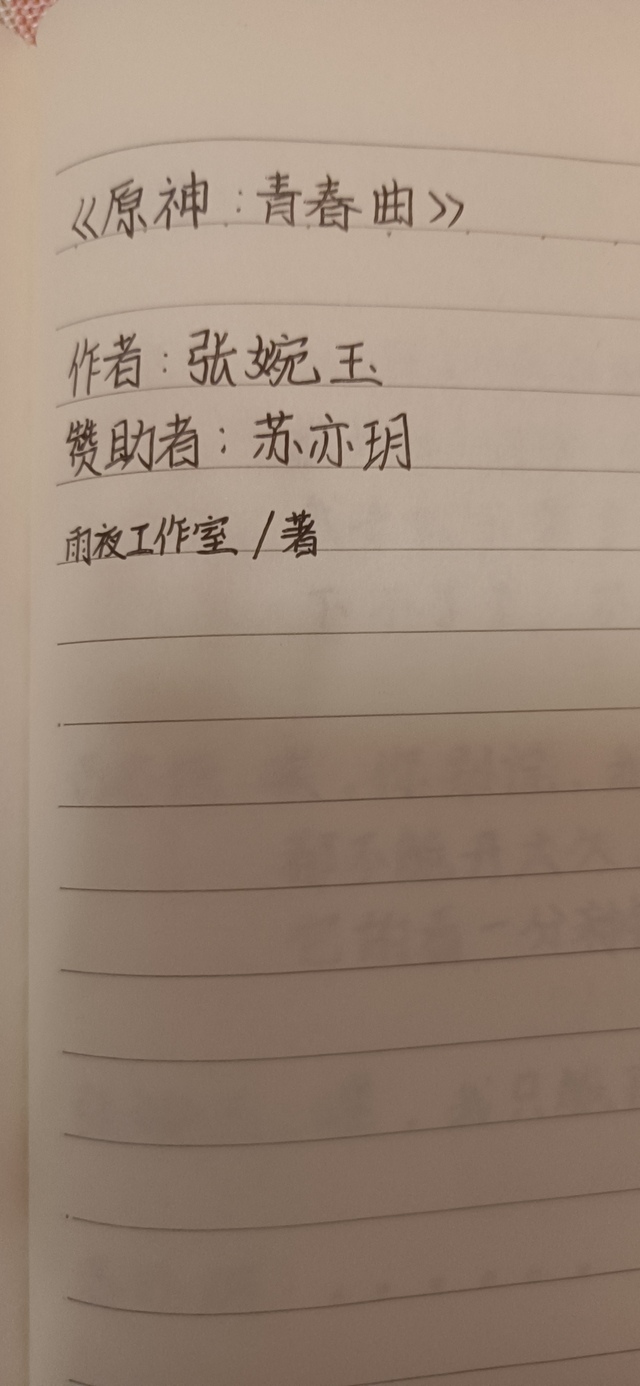 《原神：青春曲》
作者：张婉玉
赞助者：苏亦玥
雨夜工作室/著